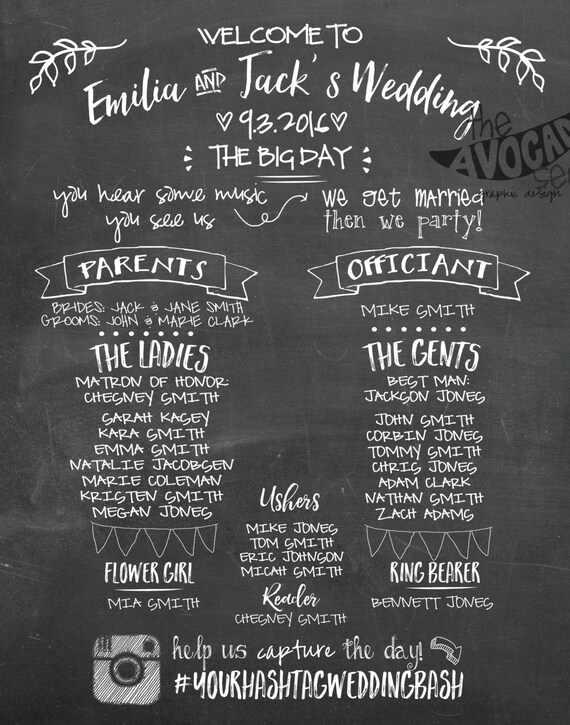 WELCOME TO
Emilia AND Jack's Wedding
9.3.2016
THE BIG DAY
you hear some music
you see us
we get married
then we party!
the
AVOCAD
graphic design
PARENTS
BRIDES: JACK & JANE SMITH
GROOMS: JOHN & MARIE CLARK
OFFICIANT
MIKE SMITH
THE LADIES
MATRON OF HONOR:
CHESNEY SMITH
SARAH KASEY
KARA SMITH
EMMA SMITH
NATALIE JACOBSEN
MARIE COLEMAN
KRISTEN SMITH
MEGAN JONES
THE GENTS
BEST MAN:
JACKSON JONES
JOHN SMITH
CORBIN JONES
TOMMY SMITH
CHRIS JONES
ADAM CLARK
NATHAN SMITH
ZACH ADAMS
Ushers
MIKE JONES
TOM SMITH
ERIC JOHNSON
MICAH SMITH
Reader
CHESNEY SMITH
FLOWER GIRL
MIA SMITH
RING BEARER
BENNETT JONES
help us capture the day!
#YOURHASHTAGWEDDINGBASH